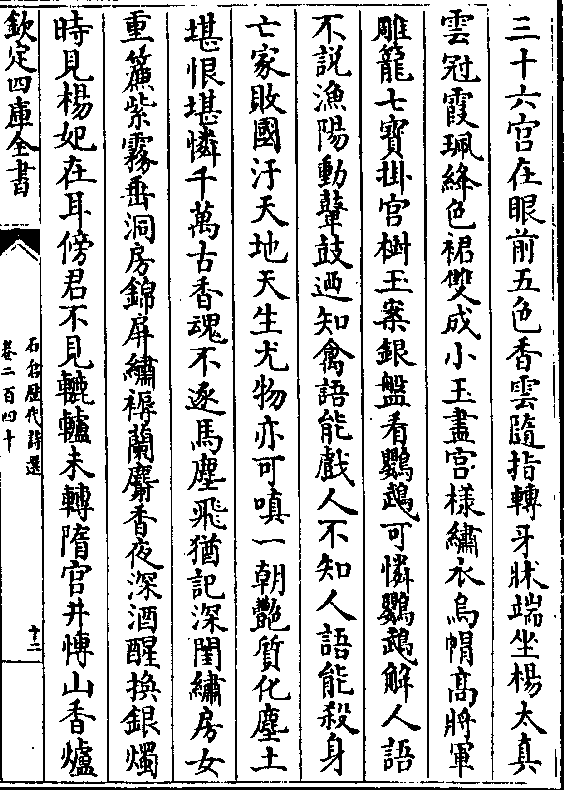 三十六宫在眼前五色香雲隨指轉牙牀端坐楊太真
雲冠霞珮絳色裙雙成小玉盡宫様繡衣烏帽髙將軍
雕籠七寳掛宫樹玉案銀盤看鸚鵡可憐鸚鵡解人語
不説漁陽動鼙鼓廼知禽語能戲人不知人語能殺身
亡家敗國汙天地天生尤物亦可嗔一朝艷質化塵土
堪恨堪憐千萬古香魂不逐馬塵飛猶記深閨繡房女
重簾紫霧垂洞房錦屏繡褥蘭麝香夜深酒醒換銀燭
時見楊妃在耳傍君不見轆轤未轉隋宫井慱山香爐
欽定四庫全書
石倉歴代詩選
卷二百四十
十二